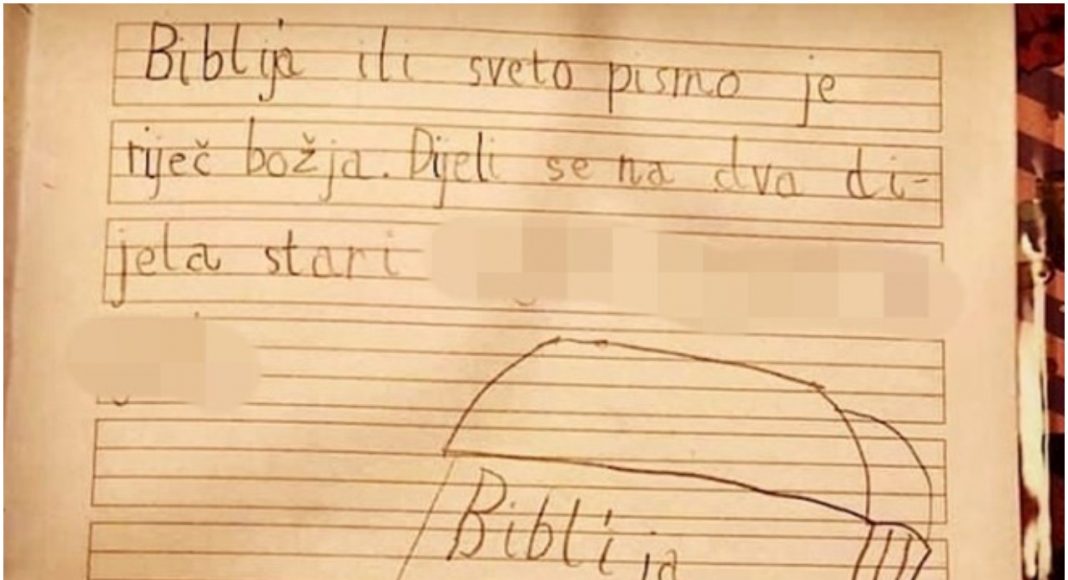 Biblija ili sveto pismo je
riječ božja. Dijeli se na dva di-
jela stari
Biblija